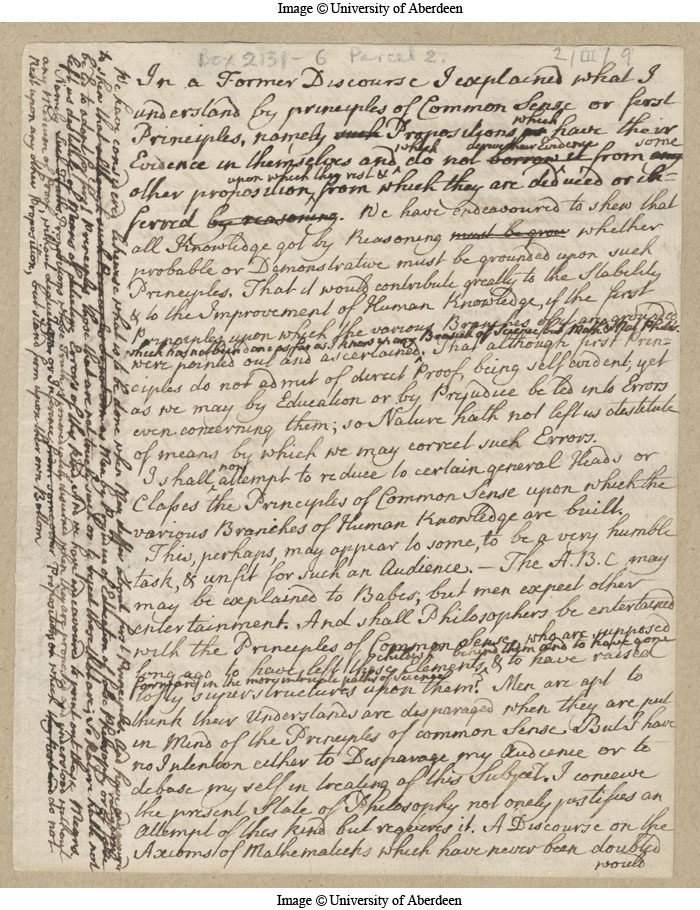 Image © University of Aberdeen
Box 2131-6 Parcel 2.
2/III/9
In a Former Discourse I explained what I
understand by principles of Common Sense or first
which
Principles, namely such Propositions as have their
which derive their Evidence some
Evidence in themselves and do not borrow it from any
upon which they rest &
other proposition, from which they are deduced or in-
ferred by reasoning. We have endeavoured to shew that
all Knowledge got by Reasoning must be grou whether
probable or Demonstrative must be grounded upon such
Principles. That it would contribute greatly to the Stability
& to the Improvement of Human Knowledge, if the first
Principles upon which the various Branches of it are grounded
which has not been done as far as I know in any Branch of Science, but
were pointed out and ascertained. That although first Prin-
ciples do not admit of direct Proof, being self evident, yet
as we may by Education or by Prejudice be led into Errors
even concerning them; so Nature hath not left us destitute
of means by which we may correct such Errors.
now
I shall attempt to reduce to certain general Heads or
Classes the Principles of Common Sense upon which the
various Branches of Human Knowledge are built.
This, perhaps, may appear to some, to be a very humble
task, & unfit for such an Audience. — The A.B.C may
may be explained to Babes, but men expect other
entertainment. And shall Philosophers be entertained
with the Principles of Common Sense, who are supposed
behind them and to have gone
long ago to have left these Elements, & to have raised
forward in the more intricate paths of Science
lofty superstructures upon them? Men are apt to
think their Understands are disparaged when they are put
in Mind of the Principles of common Sense. But I have
no Intention either to Disparage my Audience or to
debase my self in treating of this Subject. I conceive
the present State of Philosophy not onely justifies an
Attempt of this kind but requires it. A Discourse on the
Axioms of Mathematicks which have never been doubted
would
We have considered likewise what is to be done when Men differ about first Principles. And have endeavoured
to shew that
to adopt as first Principles those that are not such or to reject those that are; So Nature hath not
left us destitute of Means of detecting Errors of this kind. And we have endeavoured to point out these Means.
any
rest upon any other Proposition, but stand firm upon their own Bottom
Image © University of Aberdeen